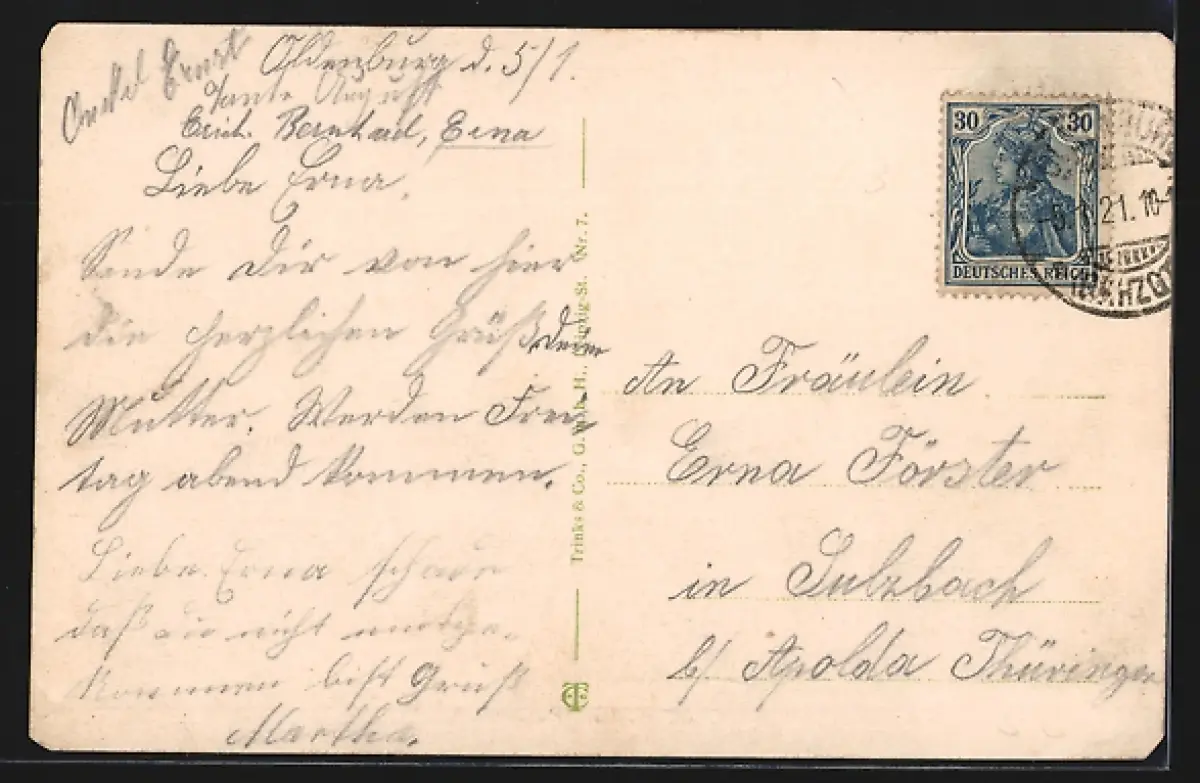 Oldenburg d. 5/1.
Onkel Ernst
Tante August
Erich. Bernhad, Erna
Liebe Erna,
Sende Dir von hier
die herzlichen Grüß deine
Mutter. Werden Frei
tag abend kommen.
Liebe Erna schade
daß du nicht mitge.
kommen bist Gruß
Martha.
Trinks & Co., G.m.b.H., Leipzig-St. (Nr. 7.
30 30
DEUTSCHES REICH
5.1.21. 10-1
An Fräulein
Erna Förster
in Sulzbach
b/ Apolda Thüringen